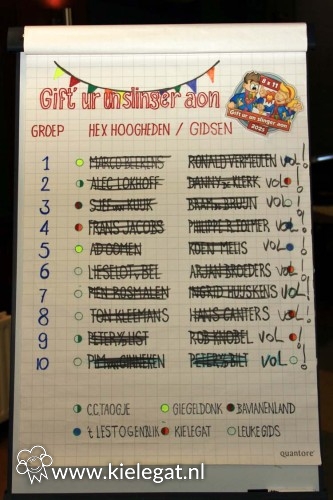 Gift' ur un slinger aon
8 x 11
Gift ur un slinger aon
2025
GROEP HEX HOOGHEDEN / GIDSEN
1 MARCO BEERENS RONALD VERMEULEN VOL!
2 ALEC LOKHOFF DANNY DE KLERK VOL!
3 SJEF VAN KUIJK BRAM DE BRUIJN VOL!
4 FRANS JACOBS PHILIPPE ROEDEMER VOL!
5 AD COMEN KOEN MELIS VOL!
6 LIESELOT V. BEL ARJAN BROEDERS VOL!
7 PIEN ROSMALEN INGRID HUIJSKENS VOL!
8 TON KLEEMANS HANS CANTERS VOL!
9 PETER V/D LIGT ROB KNOBEL VOL!
10 PIM VAN GINNEKEN PETER V/D BILT VOL!
C.C. TAOGJE GIEGELDONK BAVIANENLAND
't LESTOGENBLIK KIELEGAT LEUKE GIDS
quantore
www.kielegat.nl